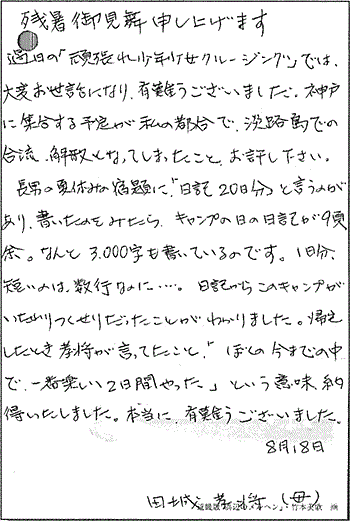 残暑御見舞申し上げます
過日の「頑張れ少年少女クルージング」では、
大変お世話になり、有難うございました。神戸
に集合する予定が私の都合で、淡路島での
合流、解散となってしまったこと、お許し下さい。
長男の夏休みの宿題に、「日記20日分」と言うのが
あり、書いたのをみたら、キャンプの日の日記が9頁
余。なんと3,000字も書いているのです。1日分、
短いのは、数行なのに……。日記からこのキャンプが
いたれりつくせりだったことがわかりました。帰宅
したとき孝将が言ってたこと、「ぼくの今までの中
で、一番楽しい2日間やった。」という意味、納
得いたしました。本当に、有難うございました。
8月18日
田城 孝将(母)